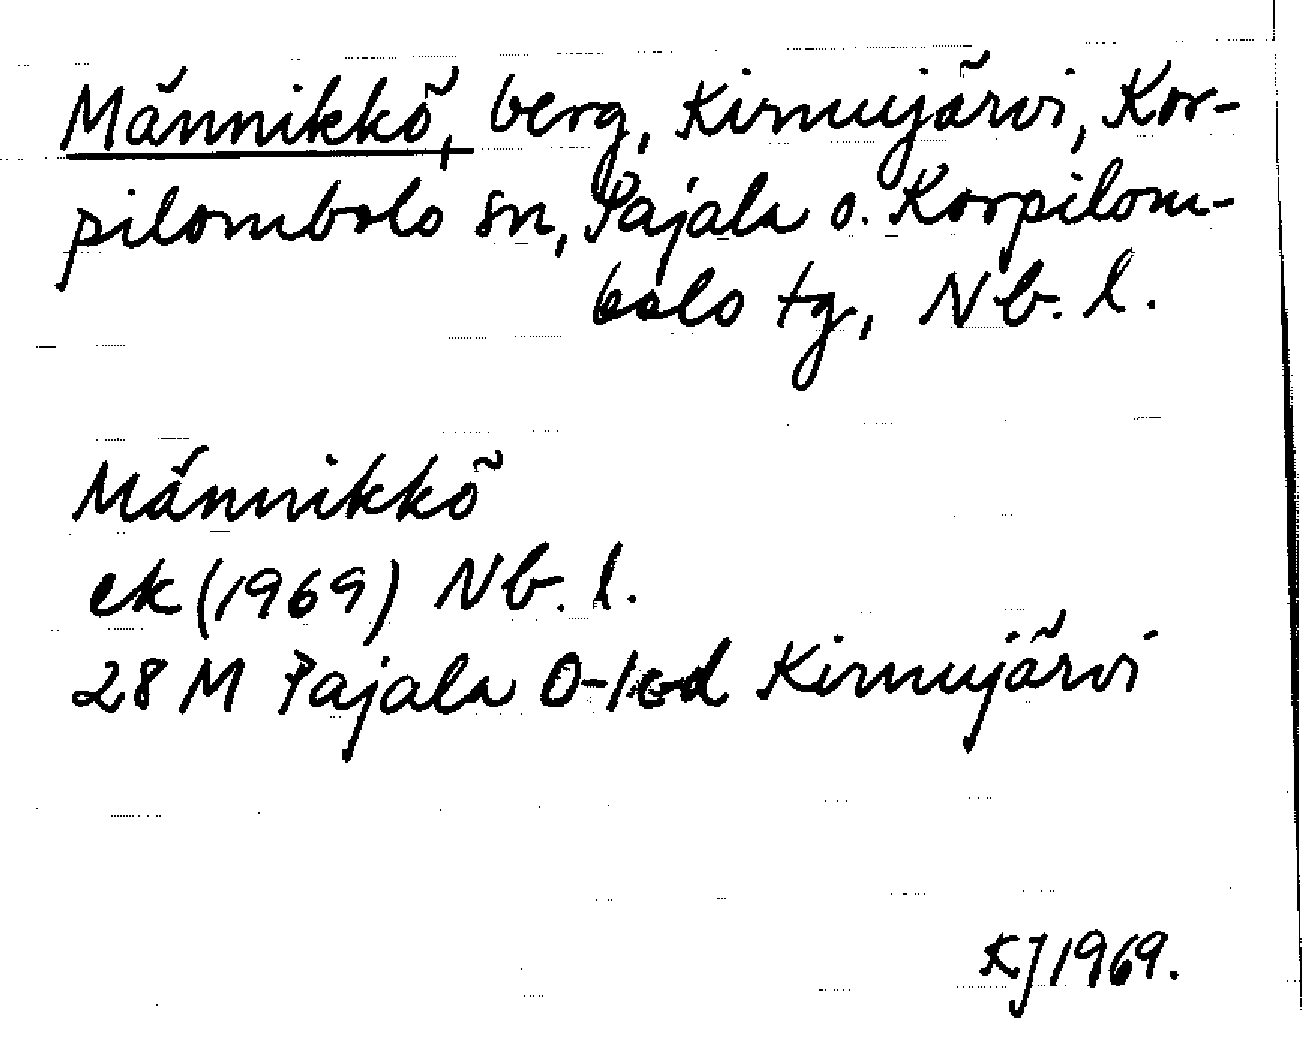 Männikkö, berg, Kirnujärvi, Kor-
pilombolo sn, Pajala o. Korpilom-
bolo tg, Nb. l.
Männikkö
ek (1969) Nb. l.
28 M Pajala 0-1 cd Kirnujärvi
KJ 1969.